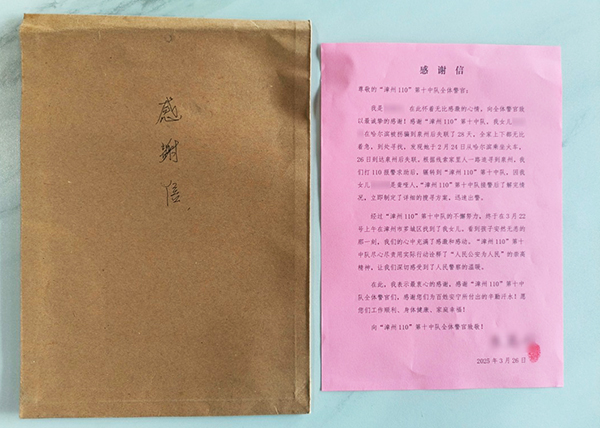 感谢信
感 谢 信
尊敬的“漳州110”第十中队全体警官：
我是 在此怀着无比感激的心情，向全体警官致
以最诚挚的感谢！感谢“漳州110”第十中队，我女儿
在哈尔滨被拐骗到泉州后失联了28天，全家上下都无比
着急，到处寻找，发现她于2月24日从哈尔滨乘坐火车，
26日到达泉州后失联，根据线索家里人一路追寻到泉州，我
们打110报警求助后，辗转到“漳州110”第十中队，因我
女儿 是聋哑人，“漳州110”第十中队接警后了解情
况，立即制定了详细的搜寻方案，迅速出警。
经过“漳州110”第十中队的不懈努力，终于在3月22
号上午在漳州市芗城区找到了我女儿，看到孩子安然无恙的
那一刻，我们的心中充满了感激和感动，“漳州110”第十
中队尽心尽责用实际行动诠释了“人民公安为人民”的崇高
精神，让我们深切感受到了人民警察的温暖。
在此，我表示最衷心的感谢，感谢“漳州110”第十中
队全体警官们，感谢您们为百姓安宁所付出的辛勤汗水！愿
您们工作顺利、身体健康、家庭幸福！
向“漳州110”第十中队全体警官致敬！
2025年3月26日